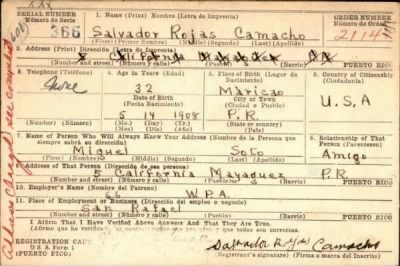 SERIAL NUMBER 1. Name (Print) Nombre (Letra de Imprenta) ORDER NUMBER
Número de Serie Número de Orden
366 Salvador Rojas Camacho 2114
(First) Primer Nombre (Middle) (Segundo) (Last) (Apellido)
2. Address (Print) Dirección (Letra de Imprenta)
5 California Mayaguez
(Number and street) (Número y calle) PUERTO RICO
3. Telephone (Teléfono) 4. Age in Years (Edad) 5. Place of Birth (Lugar de Nacimiento) 6. Country of Citizenship (Ciudadanía)
None 32 Maricao
Date of Birth City or Town U.S.A
(Fecha Nacimiento) (Ciudad o Pueblo)
5 14 1908 P.R.
Number (Número) (Mo.) (Day) (Yr.) (State or country)
(Mes) (Día) (Año) (Estado o país)
7. Name of Person Who Will Always Know Your Address (Nombre de la Persona que siempre sabrá su dirección) 8. Relationship of That Person (Parentesco)
Miguel Soto Amigo
(First) (Nombre) (Middle) (Segundo) (Last) (Apellido)
9. Address of That Person (Dirección de esa persona)
5 California Mayaguez P.R.
(Number and street) (Número y calle) PUERTO RICO
10. Employer's Name (Nombre del Patrono)
W.P.A.
11. Place of Employment or Business (Dirección del empleo o negocio)
San Rafael
(Number and street) (Número y calle) PUERTO RICO
I Affirm That I Have Verified Above Answers And That They Are True.
REGISTRATION CARD
U. S. S. Form 1
(PUERTO RICO)
Salvador Rojas Camacho
Registrant's signature (Firma o marca del Inscrito)